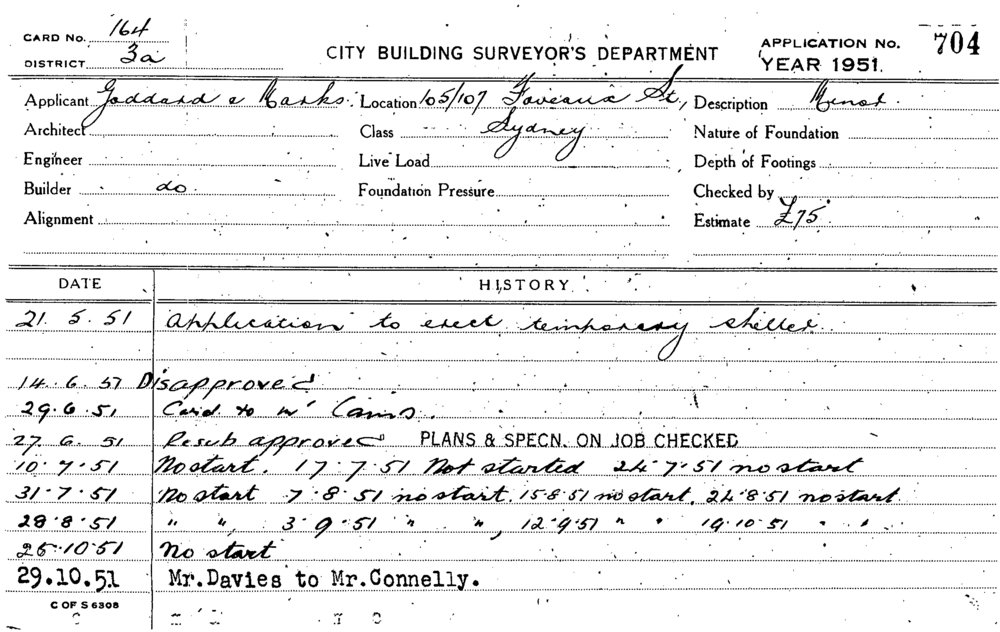 CARD No. 164
DISTRICT 3a
CITY BUILDING SURVEYOR'S DEPARTMENT
APPLICATION No. 704
YEAR 1951.
Applicant Goddard & Marks. Location 105/107 Foveaux St., Description Minor.
Architect Class Sydney Nature of Foundation
Engineer Live Load Depth of Footings
Builder do. Foundation Pressure Checked by
Alignment Estimate £75.
DATE HISTORY
21. 5. 51 Application to erect temporary shelter.
14. 6. 51 Disapproved
29. 6. 51 Card to Mr
27. 6. 51 Resub approved PLANS & SPECN. ON JOB CHECKED
10. 7. 51 No start. 17. 7. 51 Not started 24. 7. 51 no start
31. 7. 51 No start 7. 8. 51 no start. 15. 8. 51 no start. 24. 8. 51 no start.
28. 8. 51 " " 3. 9. 51 " ", 12. 9. 51 " " 19. 10. 51 " "
25. 10. 51 No start
29.10.51 Mr.Davies to Mr.Connelly.
C OF S 6308